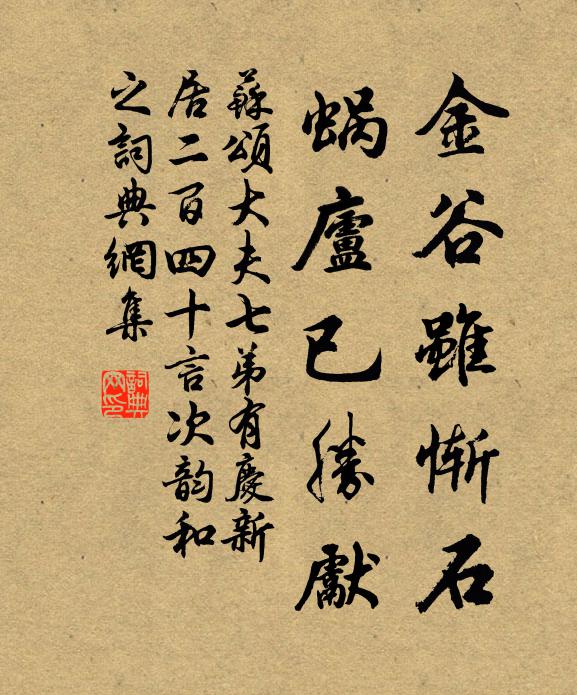 金谷雖慚石
蝸廬已勝獻
蘇頌大夫七弟有慶新
居二百四十言次韵和
之詞典網集
詞典
网印